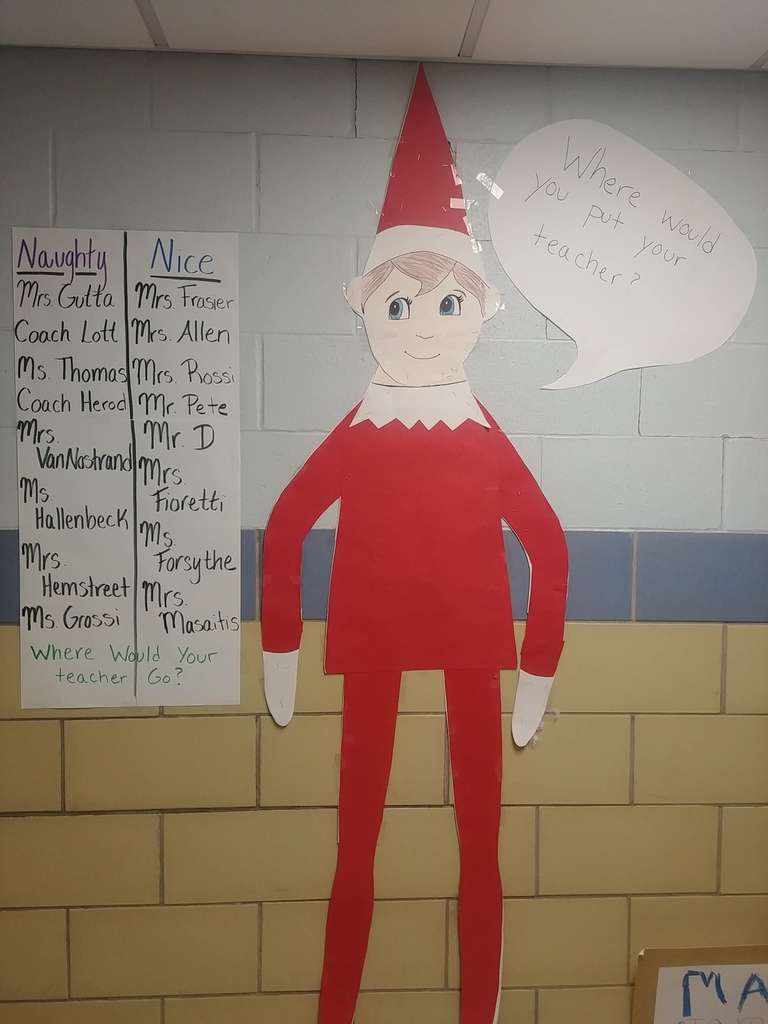 Where would
you put your
teacher?
Naughty
Mrs. Gutta
Coach Lott
Ms. Thomas
Coach Herod
Mrs.
VanNostrand
Ms.
Hallenbeck
Mrs.
Hemstreet
Ms. Grossi
Nice
Mrs. Frasier
Mrs. Allen
Mrs. Rossi
Mr. Pete
Mr. D
Mrs.
Fioretti
Ms.
Forsythe
Mrs.
Masaitis
Where Would Your
teacher Go?
MA